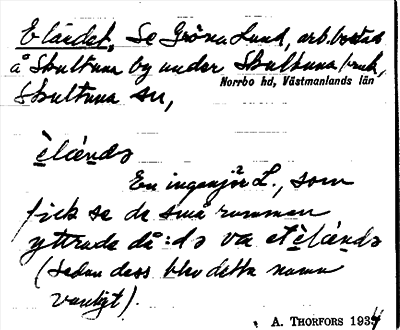 Eländet, Se Gröna Lund, arb.bostad
å Skultuna by under Skultuna bruk,
Norrbo hd, Västmanlands län
Skultuna sn,
èländə
En ingenjör L., som
fick se de små rummen
yttrade då: də va et èländə
(Sedan dess blev detta namn
vanligt).
A. THORFORS 1934